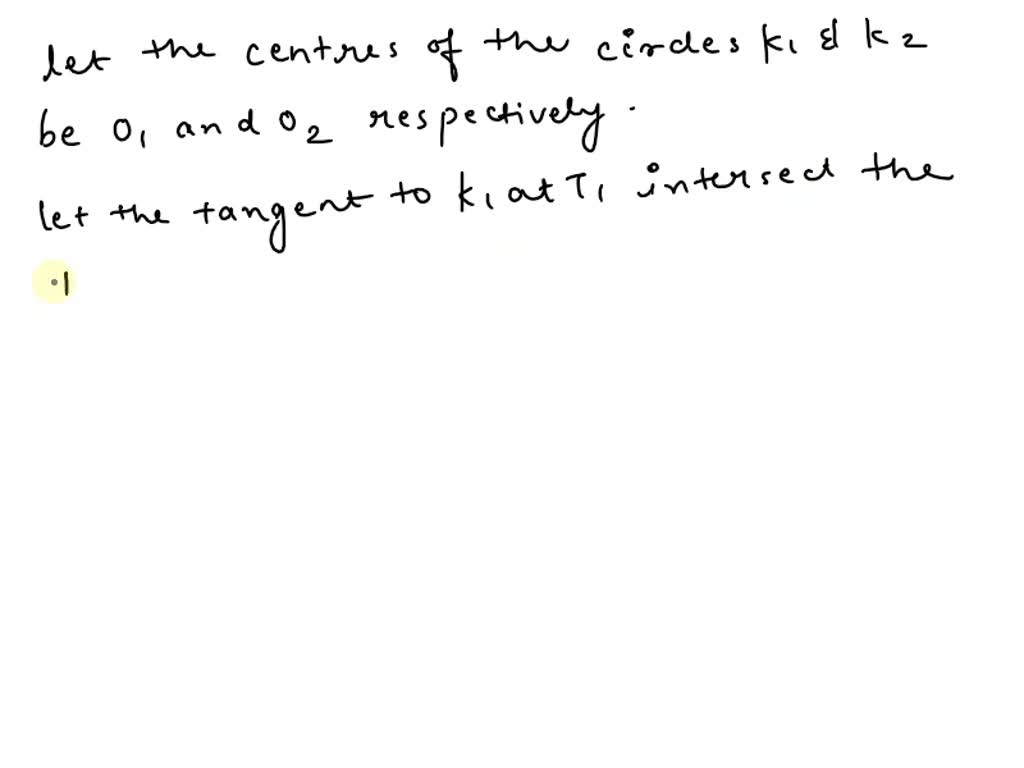 let the centres of the circles k1 & k2
be O1 and O2 respectively.
let the tangent to k1 at T1 intersect the